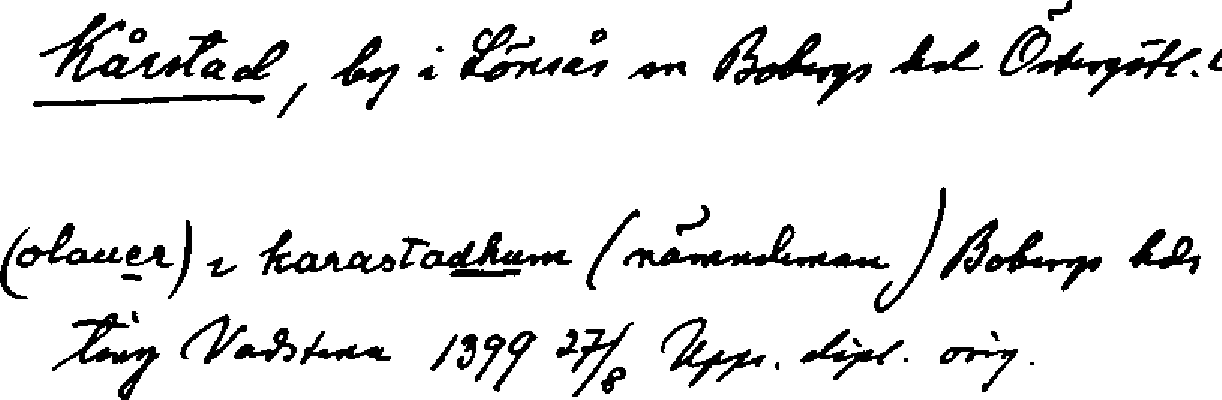 Kårstad, by i Lönsås sn Bobergs hd Östergötl. l
(olauer) i karastadhum (nämndeman) Bobergs hds
ting Vadstena 1399 27/8 Upps. dipl. orig.